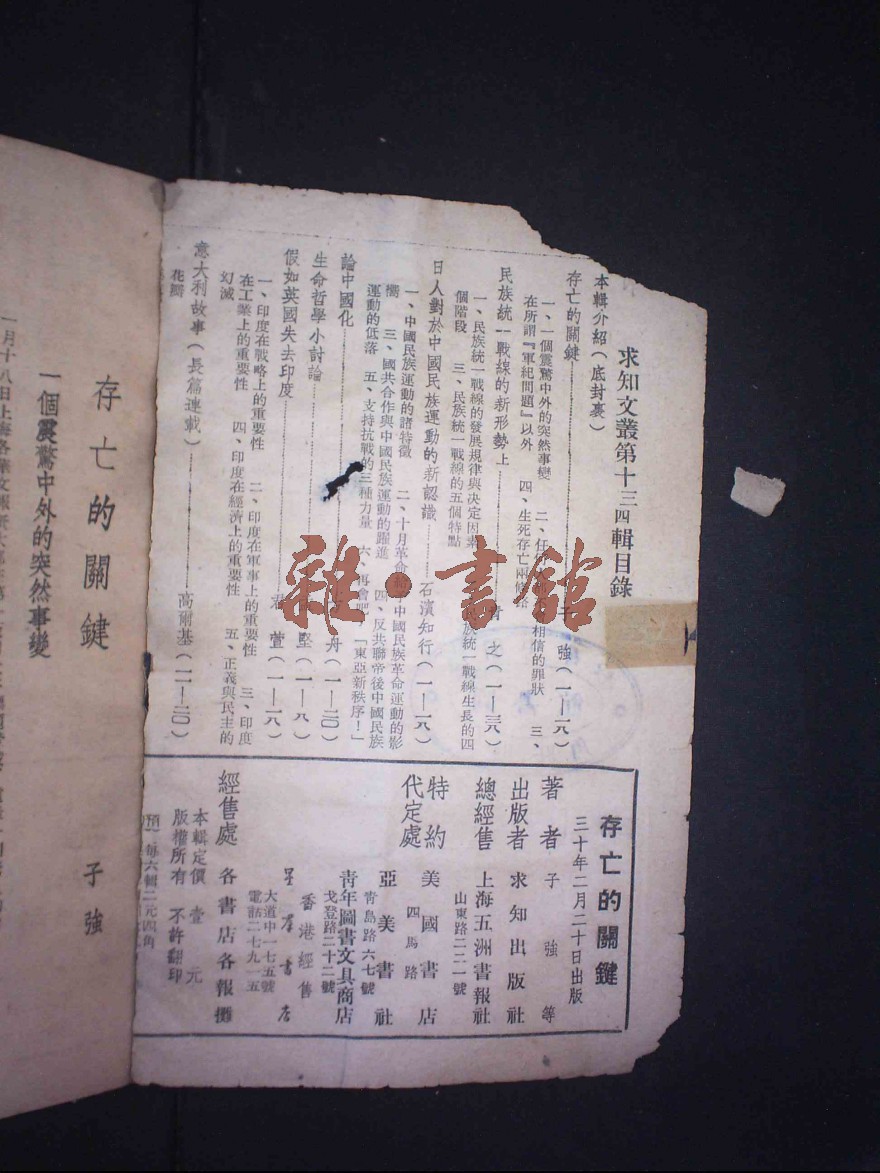 求知文叢第十三四輯目錄
本輯介紹（底封裏）
存亡的關鍵 子 強（一—一八）
一、一個震驚中外的突然事變 二、任 相信的罪狀 三、
在所謂『軍紀問題』以外 四、生死存亡兩條路
民族統一戰線的新形勢上 青 之（一—三八）
一、民族統一戰線的發展規律與决定因素 族統一戰線生長的四
個階段 三、民族統一戰線的五個特點
日人對於中國民族運動的新認識 石濱知行（一—一八）
一、中國民族運動的諸特徵 二、十月革命給予中國民族革命運動的影
響 三、國共合作與中國民族運動的躍進 四、反共聯帝後中國民族
運動的低落 五、支持抗戰的三種力量 六、再會吧「東亞新秩序！」
論中國化 舟（一—二〇）
生命哲學小討論 堅（一—一九）
假如英國失去印度 君 萱（一—一八）
一、印度在戰略上的重要性 二、印度在軍事上的重要性 三、印度
在工業上的重要性 四、印度在經濟上的重要性 五、正義與民主的
幻滅
意大利故事（長篇連載） 高爾基（一一—二〇）
花圈
存亡的關鍵
三十年二月二十日出版
著者 子強等
出版者 求知出版社
總經售 上海五洲書報社
山東路二二一號
特約代定處 美國書店
四馬路
亞美書社
青島路六七號
靑年圖書文具商店
戈登路二十二號
香港經售
星羣書店
大道中一七五號
電話二七九一五
經售處 各書店各報攤
本輯定價 壹元
版權所有 不許翻印
預 每六輯二元四角
存亡的關鍵
子強
一個震驚中外的突然事變
雜·書館